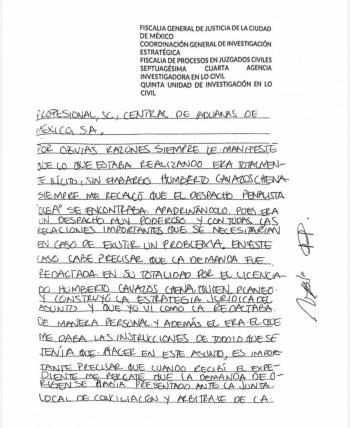 FISCALIA GENERAL DE JUSTICIA DE LA CIUDAD
DE MÉXICO
COORDINACIÓN GENERAL DE INVESTIGACIÓN
ESTRATÉGICA
FISCALIA DE PROCESOS EN JUZGADOS CIVILES
SEPTUAGÉSIMA CUARTA AGENCIA
INVESTIGADORA EN LO CIVIL
QUINTA UNIDAD DE INVESTIGACIÓN EN LO
CIVIL
PROFESIONAL, SC, CENTRAL DE ADUANAS DE
MÉXICO, SA.
POR OBVIAS RAZONES SIEMPRE LE MANIFESTE
QUE LO QUE ESTABA REALIZANDO ERA TOTALMEN-
TE ILÍCITO, SIN EMBARGO HUMBERTO CAVAZOS CHENA
SIEMPRE ME RECALCÓ QUE EL DESPACHO PENALISTA
SE ENCONTRABA APADRINÁNDOLO, PUES ERA
UN DESPACHO MUY PODEROSO Y CON TODAS LAS
RELACIONES IMPORTANTES QUE SE NECESITARIAN
EN CASO DE EXISTIR UN PROBLEMA, EN ESTE
CASO CABE PRECISAR QUE LA DEMANDA FUE
REDACTADA EN SU TOTALIDAD POR EL LICENCIA-
DO HUMBERTO CAVAZOS CHENA, QUIEN PLANEO
Y CONSTRUYO LA ESTRATEGIA JURIDICA DEL
ASUNTO Y QUE YO VI COMO LA REDACTABA
DE MANERA PERSONAL Y ADEMÁS EL ERA EL QUE
ME DABA LAS INSTRUCCIONES DE TODO LO QUE SE
TENIA QUE HACER EN ESTE ASUNTO, ES IMPOR-
TANTE PRECISAR QUE CUANDO RECIBÍ EL EXPE-
DIENTE ME PERCATE QUE LA DEMANDA DE O-
RIGEN SE HABIA PRESENTADO ANTE LA JUNTA
LOCAL DE CONCILIACION Y ARBITRAJE DE LA